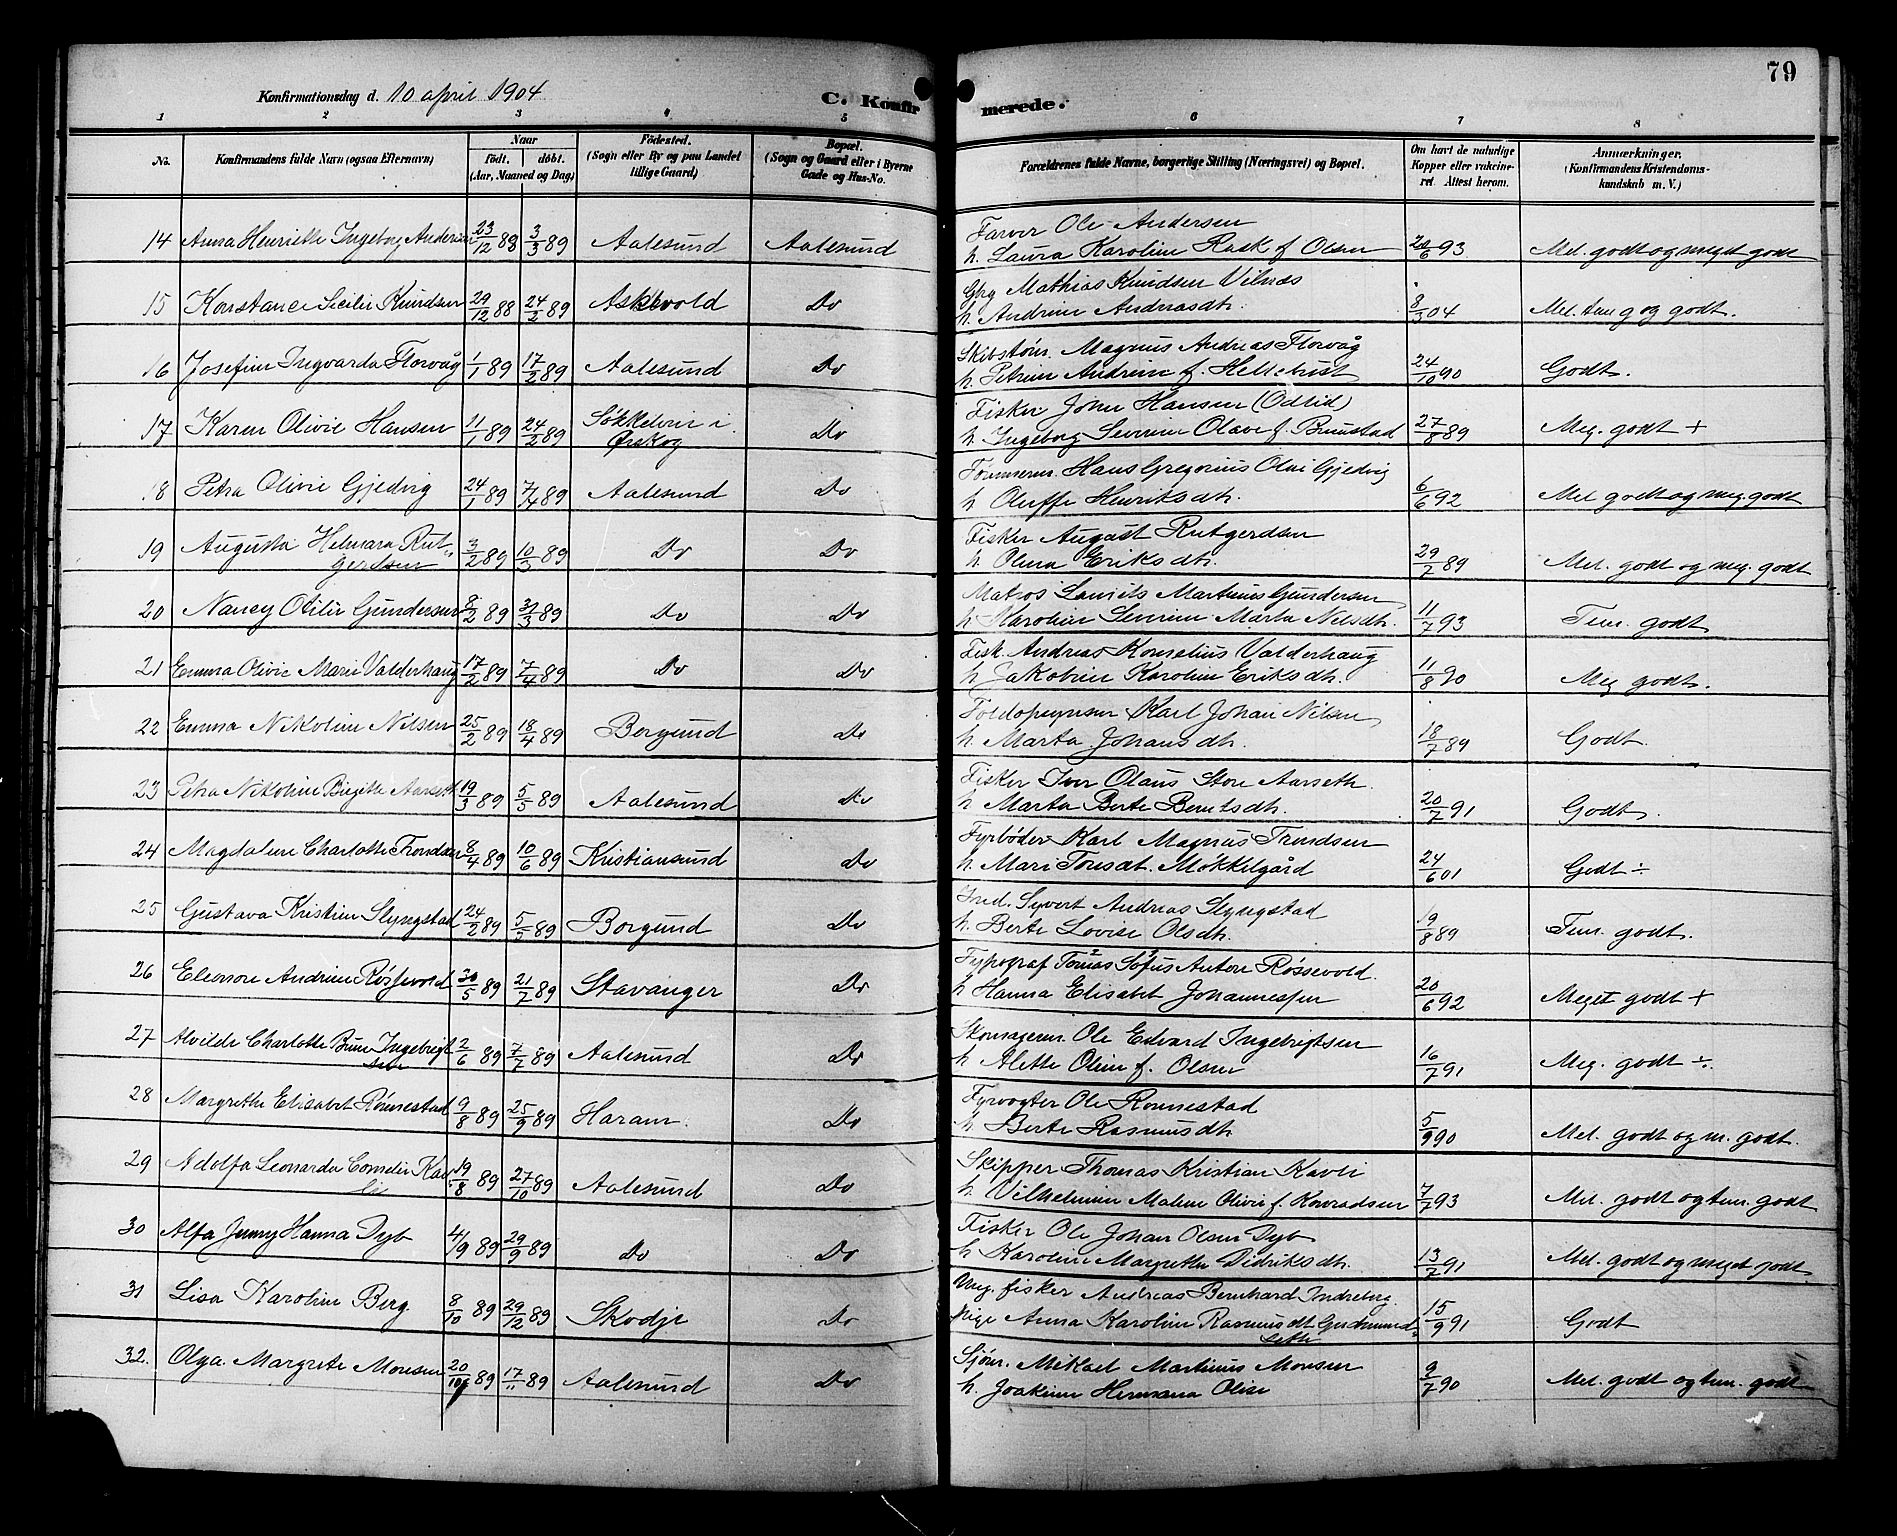 79
Konfirmationsdag d. 10 april 1904
C. Konfirmerede.
1 2 3 4 5 6 7 8
No.
Konfirmandens fulde Navn (ogsaa Efternavn)
Naar
födt. döbt.
(Aar, Maaned og Dag)
Födested.
(Sogn eller By og paa Landet
tillige Gaard)
Bopæl.
(Sogn og Gaard eller i Byerne
Gade og Hus-No.
Forældrenes fulde Navne, borgerlige Stilling (Næringsvei) og Bopæl.
Om havt de naturlige
Kopper eller vakcine-
ret. Attest herom.
Anmærkninger.
(Konfirmandens Kristendoms-
kundskab m. V.)
14 Anna Henriette Ingeborg Andersen 23/12 88 3/3 89 Aalesund Aalesund
Farver Ole Andersen
h. Laura Karoline Rask f. Olsen 20/6 93 Mel. godt og meget godt
15 Konstance Secilie Knudsen 29/12 88 24/2 89 Askevold Do
Gbrg Mathias Knudsen Vilnæs
h. Andrine Andreasdtr. 8/3 04 Mel. tem g og godt.
16 Josefine Ingvarda Florvåg 1/1 89 17/2 89 Aalesund Do
Skibstöm. Magnus Andreas Florvåg
h. Petrine Andrine f. Hellebust 24/10 90 Godt.
17 Karen Olivie Hansen 11/1 89 24/2 89 Søkkelvin i Ørskog Do
Fisker John Hansen (Odlid)
h. Ingeborg Severine Olave f. Brunstad 27/8 89 Meg. godt +
18 Petra Olivie Gjedvig 24/1 89 7/4 89 Aalesund Do
Tömmerm. Hans Gregorius Olai Gjedvig
h Oluffe Henriksdtr. 6/6 92 Mel godt og meg. godt
19 Augusta Helmara Rut-
gersen 3/2 89 10/3 89 Do Do
Fisker August Rutgerdsen
h. Olena Eriksdtr. 29/7 89 Mel. godt og meg. godt
20 Nancy Otilie Gundersen 8/2 89 31/3 89 Do Do
Matros Lauritz Martinus Gundersen
h Karoline Severine Marta Nilsdtr. 11/7 93 Tem. godt
21 Emma Olivie Marie Valderhaug 17/2 89 7/4 89 Do Do
Fisk. Andreas Kornelius Valderhaug
h Jakobine Karoline Eriksdtr. 11/8 90 Meg godt.
22 Emma Nikoline Nilsen 25/2 89 18/4 89 Borgund Do
Toldopsynsm Karl Johan Nilsen
h. Marta Johansdtr. 18/7 89 Godt.
23 Petra Nikoline Birgitte Aarseth 19/3 89 5/5 89 Aalesund Do
Fisker Iver Olaus Store Aarseth.
h Marta Berte Berntsdtr. 20/7 91 Godt.
24 Magdalene Charlotte Trondsen 8/4 89 10/6 89 Kristiansund Do
Fyrböder Karl Magnus Trondsen
h. Mari Tomasdt. Møkkelgård 24/6 01 Godt ÷
25 Gustava Kristine Slyngstad 24/2 89 5/5 89 Borgund Do
Ind. Syvert Andreas Slyngstad
h. Berte Lovise Olsdtr. 19/8 89 Tem. godt.
26 Eleonore Andrine Røssevold 30/5 89 21/7 89 Stavanger Do
Typograf Tomas Sofus Anton Røssevold.
h Hanna Elisabet Johannessen 20/6 92 Meget godt +
27 Alvilde Charlotte Bruun Ingebrigt
sen 2/6 89 7/7 89 Aalesund Do
Skomagerm. Ole Edvard Ingebrigtsen
h Alette Oline f. Olsen 16/7 91 Meg. godt ÷.
28 Margrethe Elisabet Rönnestad 9/8 89 25/9 89 Haram. Do
Fyrvogter Ole Ronnestad
h. Berte Rasmusdtr. 5/9 90 Mel. godt og m. godt.
29 Adolfa Leonarda Cornelie Kav
li 19/8 89 27/10 89 Aalesund Do
Skipper Thomas Kristian Kavli
h. Vilhelmine Malene Olivie f. Konradsen 7/7 93 Mel. godt og tem. godt
30 Alfa Jenny Hanna Dyb 4/9 89 29/9 89 Do Do
Fisker Ole Johan Olsen Dyb
h Karoline Margrethe Didriksdtr. 13/7 91 Mel. godt og meget godt
31 Lisa Karoline Berg. 8/10 89 29/12 89 Skodje Do
Ung. fisker Andreas Bernhard Indreberg.
pige Anna Karoline Rasmusdt Gudmund
seth 15/9 91 Godt
32. Olga Margrete Monsen 20/10 89 17/11 89 Aalesund Do
Sjöm. Mikael Martinus Monsen
h. Joakime Hermana Olise 9/7 90 Mel. godt og tem. godt